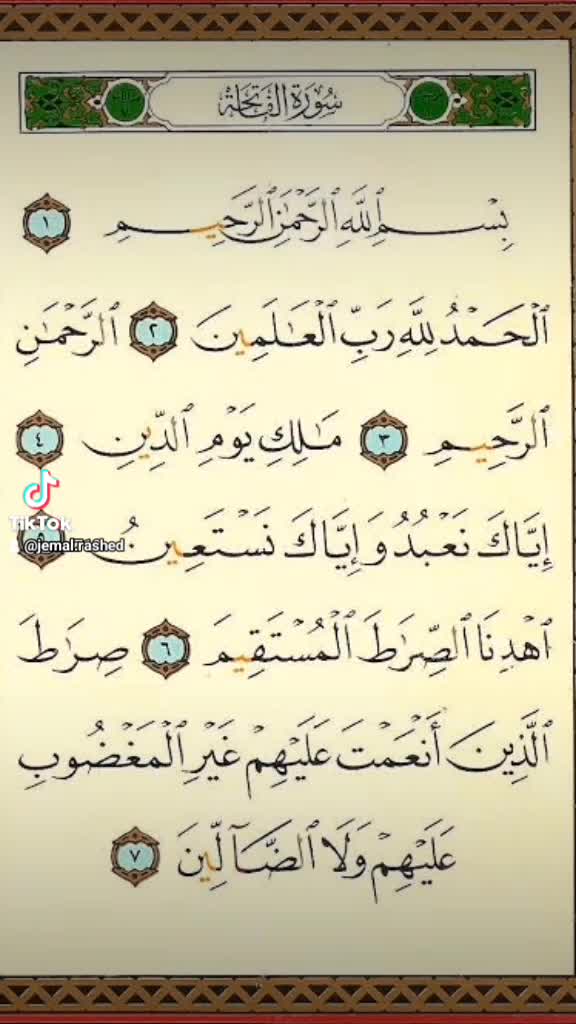 سُورَةُ الفَاتِحَة
بِسْمِ ٱللَّهِ ٱلرَّحْمَٰنِ ٱلرَّحِيمِ ١
ٱلْحَمْدُ لِلَّهِ رَبِّ ٱلْعَٰلَمِينَ ٢ ٱلرَّحْمَٰنِ
ٱلرَّحِيمِ ٣ مَٰلِكِ يَوْمِ ٱلدِّينِ ٤
إِيَّاكَ نَعْبُدُ وَإِيَّاكَ نَسْتَعِينُ ٥
ٱهْدِنَا ٱلصِّرَٰطَ ٱلْمُسْتَقِيمَ ٦ صِرَٰطَ
ٱلَّذِينَ أَنْعَمْتَ عَلَيْهِمْ غَيْرِ ٱلْمَغْضُوبِ
عَلَيْهِمْ وَلَا ٱلضَّآلِّينَ ٧
TikTok
@jemal.rashed